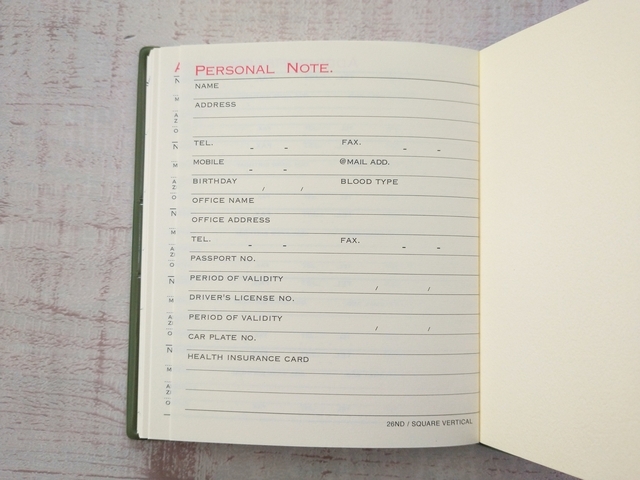 PERSONAL NOTE.
NAME
ADDRESS
TEL. - - FAX. - -
MOBILE - - @MAIL ADD.
BIRTHDAY / / BLOOD TYPE
OFFICE NAME
OFFICE ADDRESS
TEL. - - FAX. - -
PASSPORT NO.
PERIOD OF VALIDITY / /
DRIVER'S LICENSE NO.
PERIOD OF VALIDITY / /
CAR PLATE NO.
HEALTH INSURANCE CARD
26ND / SQUARE VERTICAL